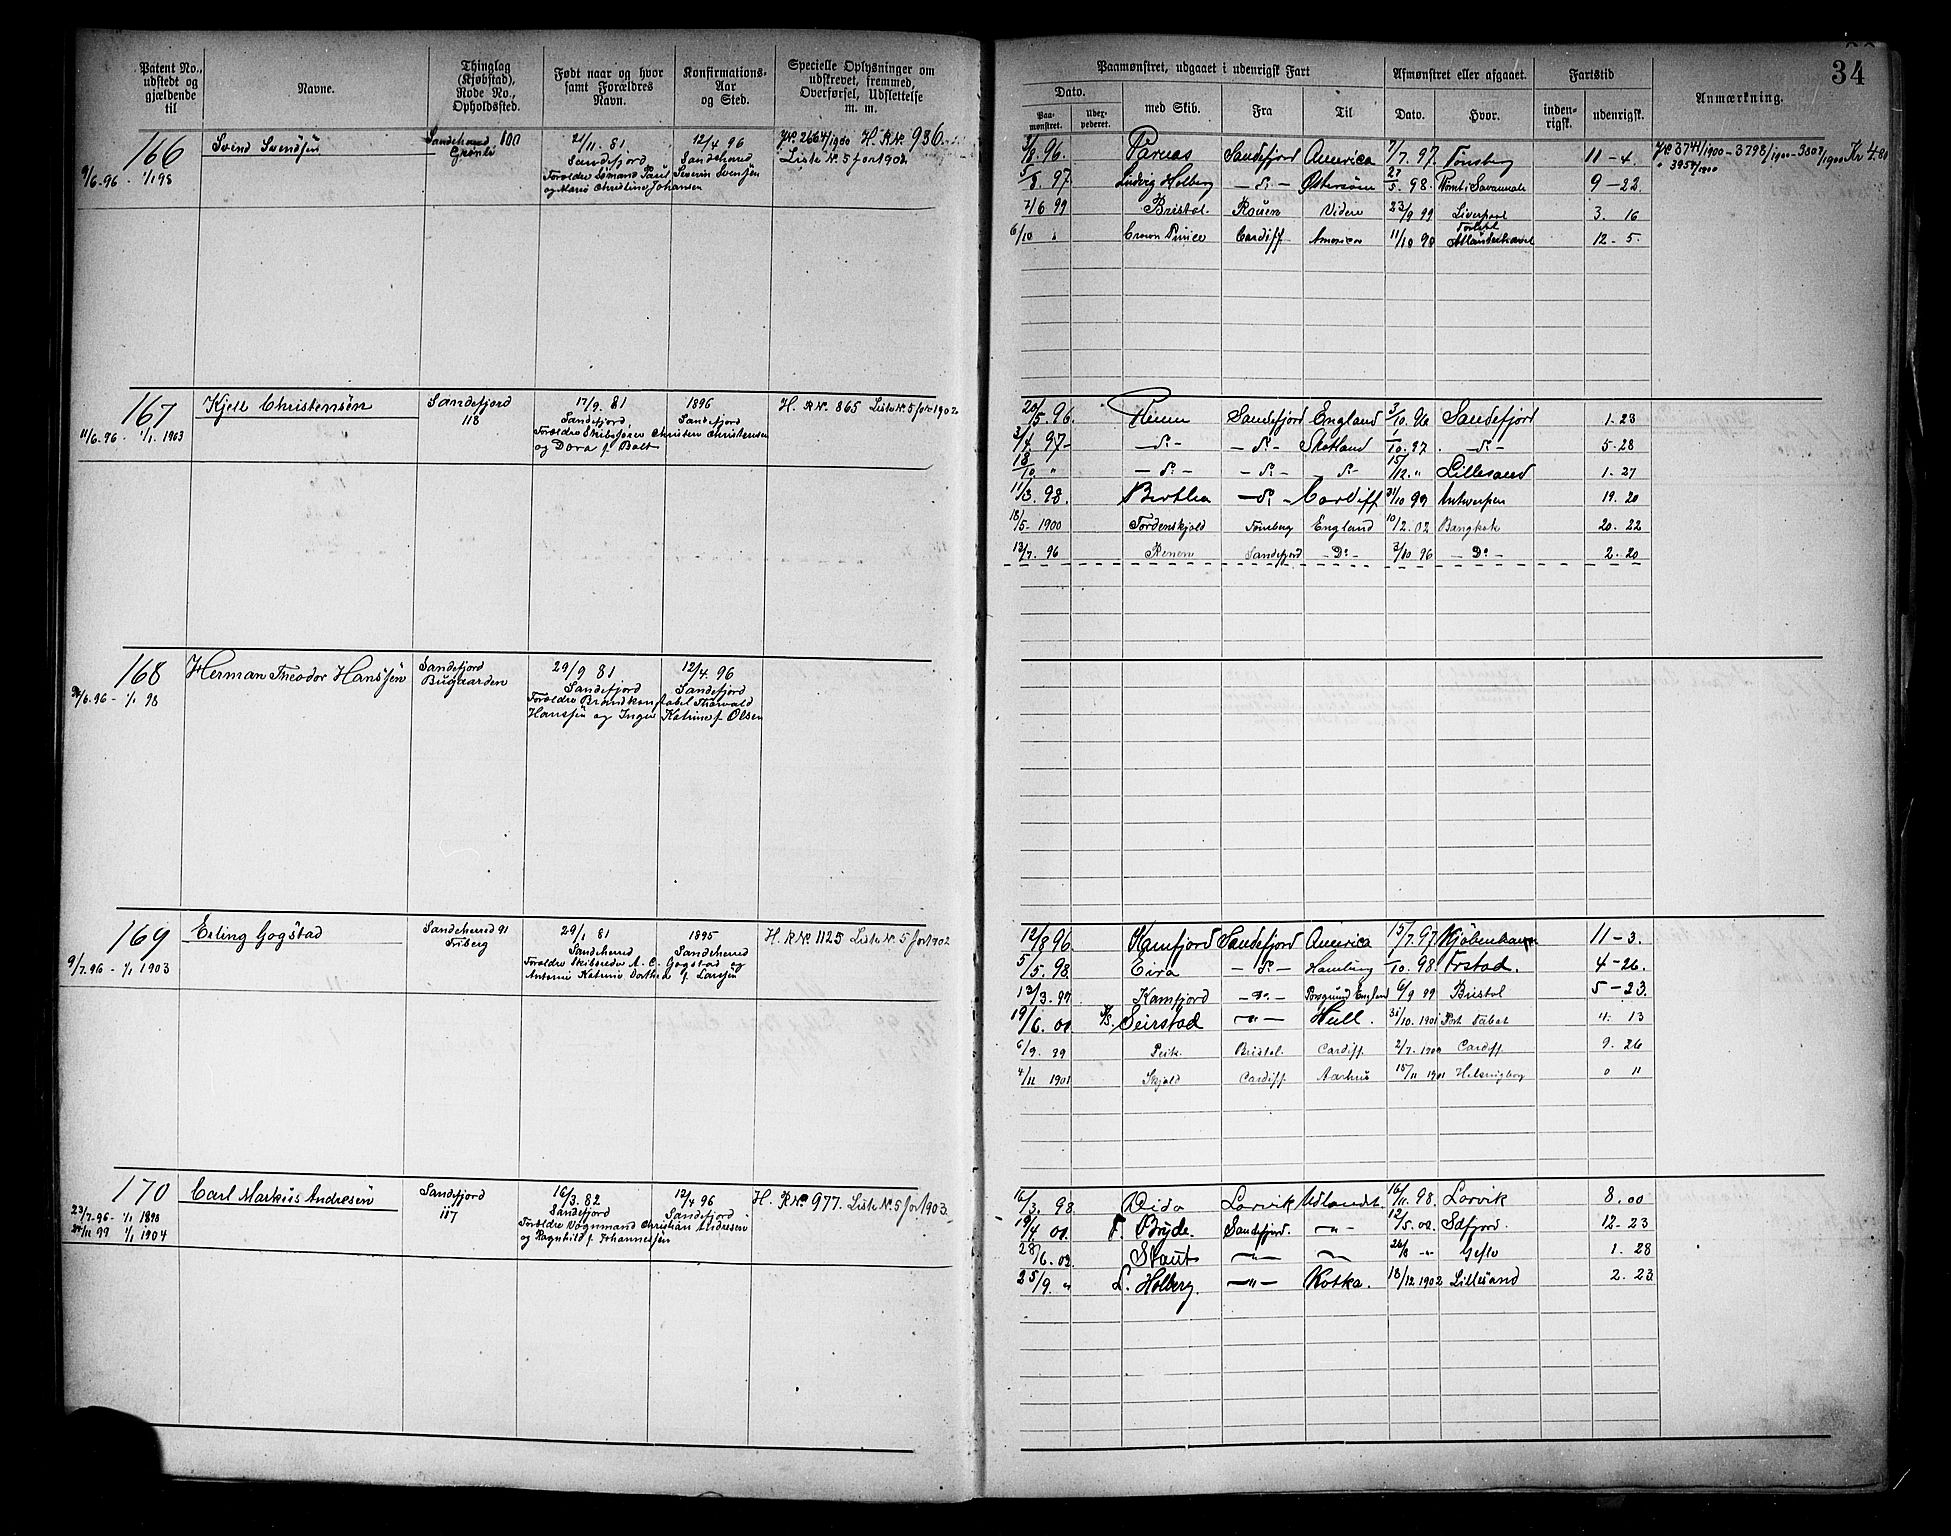 34
Patent No., udstedt og gjældende til
Navne.
Thinglag (Kjøbstad), Rode No., Opholdssted.
Født naar og hvor samt Forældres Navn.
Konfirmations-Aar og Sted.
Specielle Oplysninger om udskrevet, fremmed, Overførsel, Udslettelse m. m.
Paamønstret, udgaaet i udenrigsk Fart
Afmønstret eller afgaaet.
Fartstid
Anmærkning.
Dato.
Paamønstret.
med Skib.
Fra
Til
Dato.
Hvor.
indenrigsk.
udenrigsk.
166
9/6.96 - 1/1 98
Svend Svendsen
Sandeherred
Grønli
21/11. 81
Sandefjord
12/4 96
Sandeherred
Severin Svensen
og Marie Christine Johansen
H. R N. 986.
Liste N. 5 for 1902.
3/8.96. Parnas Sandefjord America 7/7. 97. Tønsberg 11 - 4.
5/8. 97. Ludvig Holberg Østersøen 5. 98. 9 - 22
7/6 99 Bristol. Rouen Videre 23/9 99 Liverpool 3. 16
6/10 Crown Prince Cardiff America 11/10 98 Forlist Atlanterhavet 12 - 5.
167
11/6.96 - 1/1. 1903
Kjell Christensen
Sandefjord
118
17/9. 81
Sandefjord
Forældre Skibsfører Christen Christensen
og Dora f. Bolt
1896
Sandefjord
H. R N. 865 Liste N. 5 for 1902
20/5 96. Sandefjord England 3/10. 96 Sandefjord 1. 23
3/4. 97 - Do - - Do - Skotland 1/10. 97 - Do - 5 - 28
18/10 " - Do - - Do - - Do - 15/12. " Lillesand 1. 27
11/3. 98. Bertha - Do - Cardiff 31/10 99 Antwerpen 19. 20
18/5. 1900 Tordenskjold Tønsberg England 10/2. 02 Bangkok 20. 22
13/7. 96 Sandefjord - Do - 3/10 96 - Do - 2. 20
168
/6.96 - 1/1 98
Herman Theodor Hanssen
Sandefjord
Bugaarden
29/9 81
Sandefjord
Forældre Brandkonstabel Thorvald
Hanssen og Inger Katrine f. Olsen
12/4. 96
Sandefjord
169
9/7.96 - 1/1 1903
Erling Gogstad
Sandeherred 91
Friberg
29/1 81
Sandeherred
Forældre Skibsreder A. C. Gogstad og
Antonie Katrine Dorthea f. Larsen
1895
Sandeherred
H. R No. 1125 Liste N. 5 for 1902
12/8 96. Kamfjord Sandefjord America 15/7. 97. Kjøbenhavn 11 - 3.
5/5. 98. Eira - Do - Hamburg /10. 98. Ystad. 4 - 26.
13/3. 99 Kamfjord - Do - Porsgrund England 6/9 99 Bristol 5 - 23.
19/6. 01 Seirstad - " - Hull. 31/10. 1901 Port Talbot 4. 13
6/9. 99 Bristol. Cardiff. 2/7. 1900 Cardiff 9. 26
4/11 1901 Skjold Cardiff. Aarhus 15/11 1901 Helsingborg 0 11
170
23/7.96 - 1/1 1898
24/11 99 1/1 1904
Carl Markus Andresen
Sandefjord
117
16/3. 82
Sandefjord
Forældre Vognmand Christian Andresen
og Ragnhild f. Johannessen
12/4 96
Sandefjord
H. R No 977. Liste N. 5 for 1903.
16/3. 98. Dido Larvik Udlandet. 16/11. 98. Larvik 8. 00
19/4 01. F. Bryde. Sandefjord. - " - 12/5. 02. Sdfjord. 12 - 23
28/6. 02. Staut - " - - " - 26/8 - " - Gefle 1. 28
25/9. " L. Holberg. - " - Kotka. 18/12 1902 Lillesand 2. 23